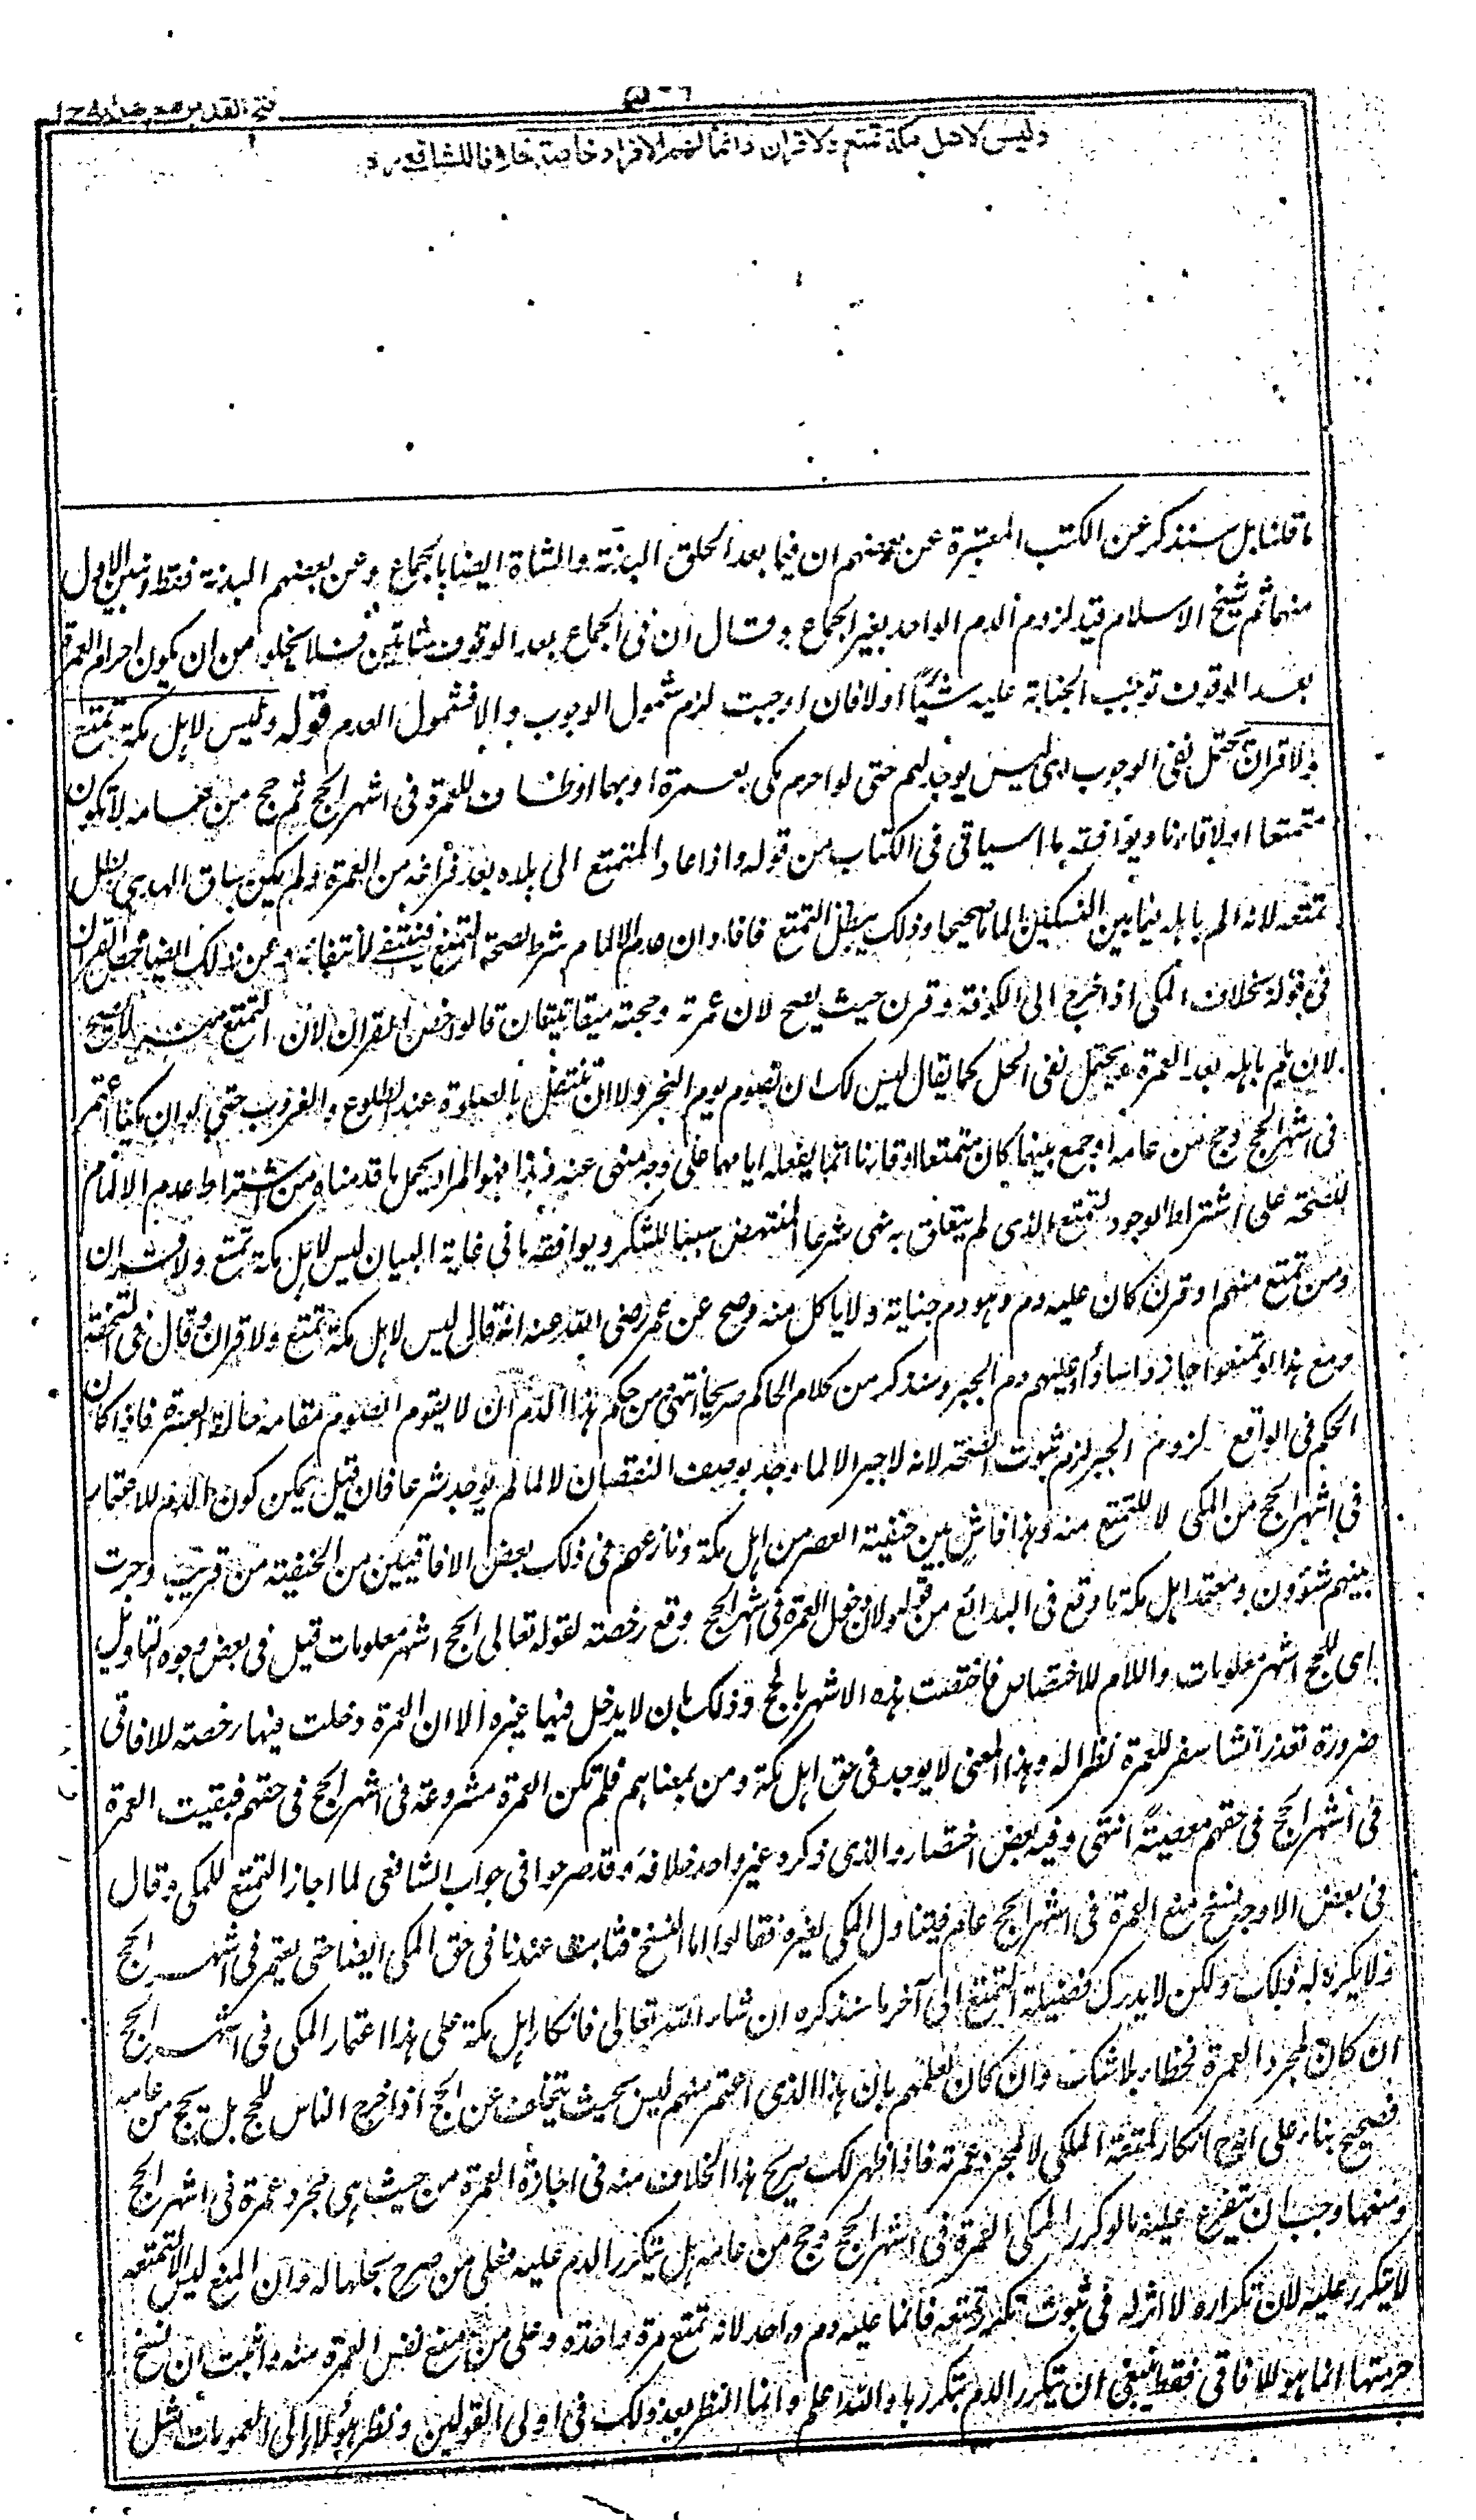 فتح القدير مع هداية ج ١
وليس لاهل مكة تمتع ولا قران وانما لهم الافراد خاصة خلافا للشافعي رح
ما قلنا بل سنذكر عن الكتب المعتبرة عن بعضهم ان فيما بعد الحلق البدنة والشاة ايضا بالجماع وعن بعضهم البدنة فقط ونبين الاولى
منهما ثم شيخ الاسلام قيد لزوم الدم الواحد بغير الجماع وقال ان فى الجماع بعد الوقوف شاتين فلا يخلو من ان يكون احرام العمرة
بعد الوقوف توجب الجناية عليه شيئا اولا فان اوجبت لزم شمول الوجوب والا فشمول العدم قوله وليس لاهل مكة تمتع
ولا قران يحتمل نفى الوجود اى ليس يوجد لهم حتى لو احرم مكى بعمرة او بهما او طاف للعمرة فى اشهر الحج ثم حج من عامه لا يكون
متمتعا ولا قارنا ويوافقه ما سياتى فى الكتاب من قوله واذا عاد المتمتع الى بلده بعد فراغه من العمرة ولم يكن ساق الهدى بطل
تمتعه لانه الم باهله فيما بين النسكين الماما صحيحا وذلك يبطل التمتع فافاد ان عدم الالمام شرط لصحة التمتع فينتفى لانتفائه وعن ذلك ايضا خص القران
فى قوله بخلاف المكى اذا خرج الى الكوفة وقرن حيث يصح لان عمرته وحجته ميقاتيتان قالوا خص القران لان التمتع منه لا يصح
لانه يلم باهله بعد العمرة ويحتمل نفى الحل كما يقال ليس لك ان تصوم يوم النحر ولا ان تتنفل بالصلوة عند الطلوع والغروب حتى لو ان مكيا اعتمر
فى اشهر الحج وحج من عامه او جمع بينهما كان متمتعا او قارنا اثما بفعله اياهما على وجه منهى عنه وهذا هو المراد بحمل ما قدمناه من اشتراط عدم الالمام
للصحة على اشتراط الوجود التمتع الذى لم يتعلق به نهى شرعا المنتهض سببا للشكر ويوافقه ما فى غاية البيان ليس لاهل مكة تمتع ولا قران
ومن تمتع منهم او قرن كان عليه دم وهو دم جناية ولا ياكل منه وصح عن عمر رضى الله عنه انه قال ليس لاهل مكة تمتع ولا قران وقال فى التحفة
ومع هذا لو تمتعوا جاز واساؤا وعليهم دم الجبر وسنذكر من كلام الحاكم صريحا انتهى ومن حكم هذا الدم ان لا يقوم الصوم مقامه حالة العسرة فاذا كان
الحكم فى الواقع لزوم الجبر لزم ثبوت الصحة لانه لا جبر الا لما وجد بوصف النقصان لا لما لم يوجد شرعا فان قيل يمكن كون الدم للاعتمار
فى اشهر الحج من المكى لا للتمتع منه وهذا فاش بين حنفية العصر من اهل مكة ونازعهم فى ذلك بعض الافاقيين من الحنفية من قريب وجرت
بينهم شؤون ومعتمد اهل مكة ما وقع فى البدائع من قوله ولان دخول العمرة فى اشهر الحج وقع رخصة لقوله تعالى الحج اشهر معلومات قيل فى بعض وجوه التاويل
اى للحج اشهر معلومات واللام للاختصاص فاختصت هذه الاشهر بالحج وذلك بان لا يدخل فيها غيره الا ان العمرة دخلت فيها رخصة للافاقى
ضرورة تعذر انشاء سفر للعمرة نظرا له وهذا المعنى لا يوجد فى حق اهل مكة ومن بمعناهم فلم تكن العمرة مشروعة فى اشهر الحج فى حقهم فبقيت العمرة
فى اشهر الحج فى حقهم معصية انتهى وفيه بعض اختصار والذى ذكره غير واحد خلافه وقد صرحوا فى جواب الشافعى لما اجاز التمتع للمكى وقال
فى بعض الاوجه نسخ منع العمرة فى اشهر الحج عام فيتناول المكى لغيره فقالوا اما النسخ فثابت عندنا فى حق المكى ايضا حتى يعتمر فى اشهر الحج
ولا يكره له ذلك ولكن لا يدرك فضيلة التمتع الى آخر ما سنذكره ان شاء الله تعالى فانكار اهل مكة على هذا اعتمار المكى فى اشهر الحج
ان كان لمجرد العمرة فخطأ بلا شك وان كان لعلمهم بان هذا الذى اعتمر منهم ليس بحيث يتخلف عن الحج اذا خرج الناس للحج بل يحج من عامه
فصحيح بناء على انه ح انكار لمتعة المكى لا لمجرد عمرته فاذا ظهر لك صريح هذا الخلاف منه فى اجازة العمرة من حيث هى مجرد عمرة فى اشهر الحج
ومنعها وجب ان يتفرع عليه ما لو كرر المكى العمرة فى اشهر الحج وحج من عامه هل يتكرر الدم عليه فعلى من صرح بحلها له وان المنع ليس الا لتمتعه
لا يتكرر عليه لان تكراره لا اثر له فى ثبوت تكرر تمتعه فانما عليه دم واحد لانه تمتع مرة واحدة وعلى من منع نفس العمرة منه واثبت ان نسخ
حرمتها انما هو للافاقى فقط ينبغى ان يتكرر الدم بتكررها والله اعلم وانما النظر بعد ذلك فى اولى القولين ونظر هؤلاء الى العمومات مثل